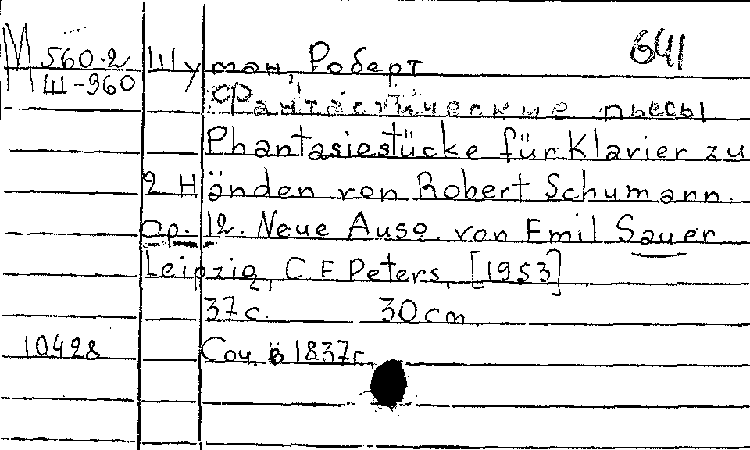 641
М 560.2 Шуман, Роберт
Ш-960
Фантастические пьесы
Phantasiestücke für Klavier zu
2 Händen von Robert Schumann.
Op. 12. Neue Ausg. von Emil Sauer
Leipzig, C. F. Peters, [1953]
37 с. 30 cm
10428 Соч. в 1837г.